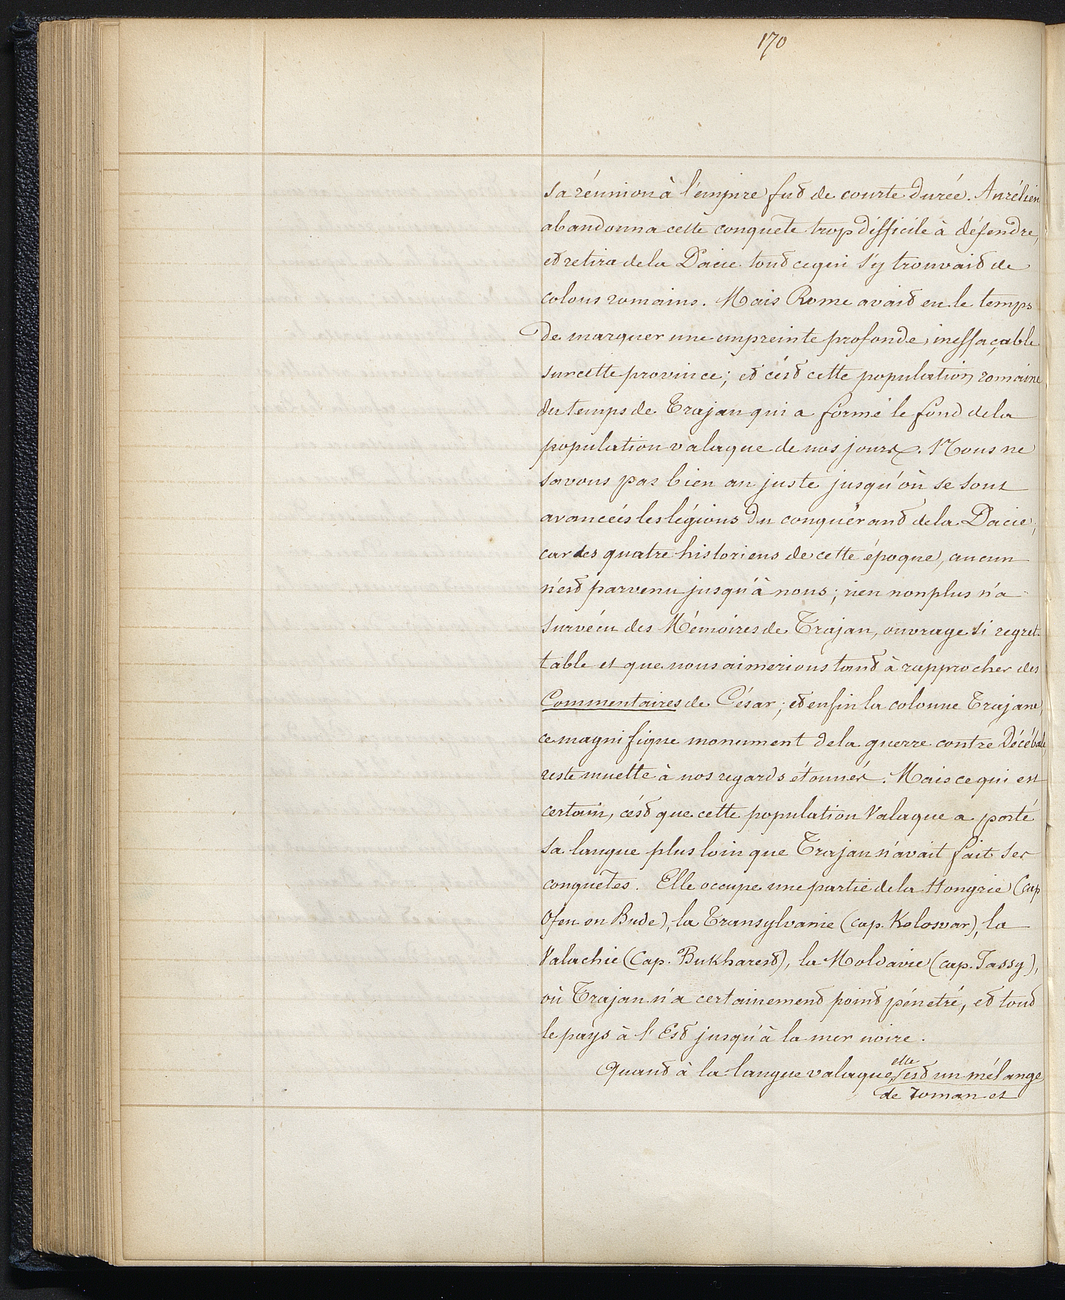 170
sa réunion à l'empire fut de courte durée. Aurélien
abandonna cette conquête trop difficile à défendre,
et retira de la Dacie tout ce qui s'y trouvait de
colons romains. Mais Rome avait eu le temps
de marquer une empreinte profonde, ineffaçable
sur cette province; et c'est cette population romaine
du temps de Trajan qui a formé le fond de la
population valaque de nos jours. Nous ne
savons pas bien au juste jusqu'où se sont
avancées les légions du conquérant de la Dacie,
car des quatre historiens de cette époque, aucun
n'est parvenu jusqu'à nous; rien non plus n'a
survécu des Mémoires de Trajan, ouvrage si regret-
table et que nous aimerions tant à rapprocher des
Commentaires de César; et enfin la colonne Trajane,
ce magnifique monument de la guerre contre Décébale
reste muette à nos regards étonnés. Mais ce qui est
certain, c'est que cette population Valaque a porté
sa langue plus loin que Trajan n'avait fait ses
conquêtes. Elle occupe une partie de la Hongrie (cap
Ofen ou Bude), la Transylvanie (cap. Kolosvar), la
Valachie (Cap. Bukharest), la Moldavie (cap. Jassy),
où Trajan n'a certainement point pénétré, et tout
le pays à l'Est jusqu'à la mer noire.
Quant à la langue valaque, elle est un mélange
de roman et